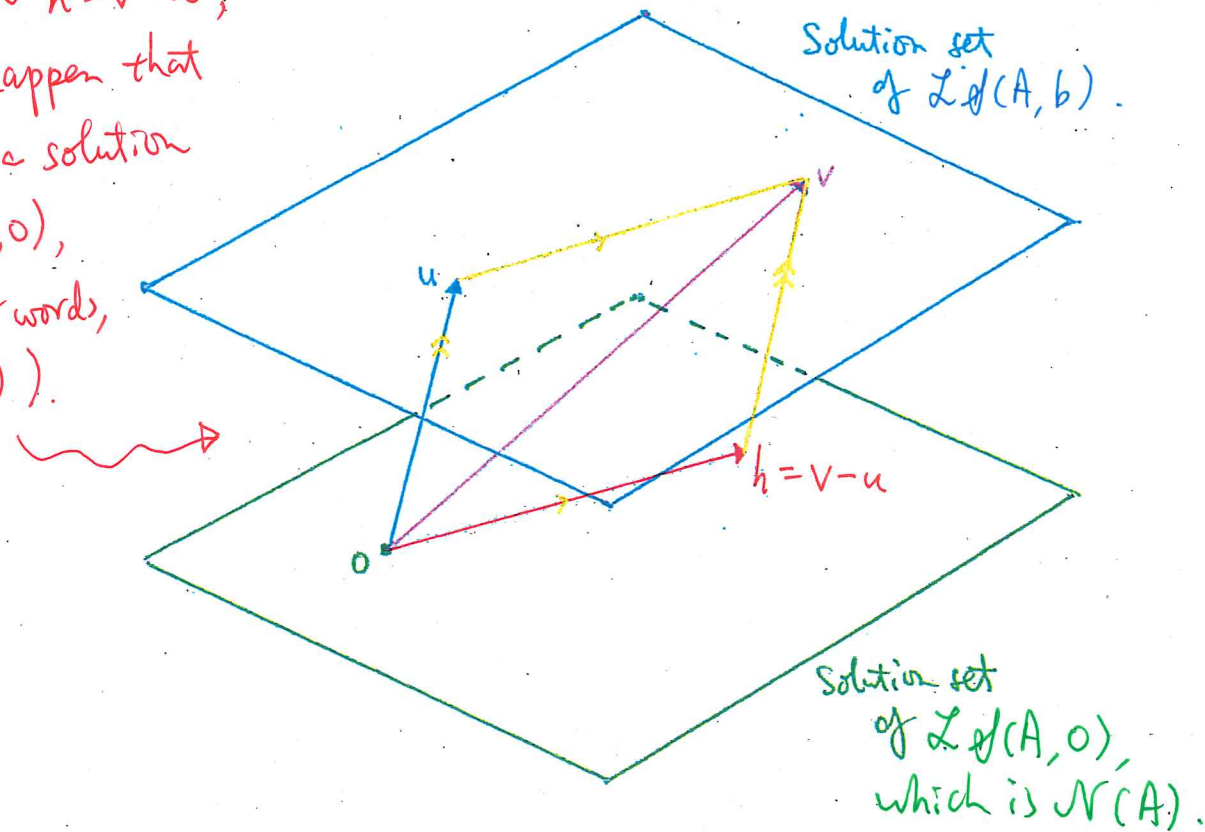 h = v - u,
appen that
a solution
,0),
words,
) ).
Solution set
of LS(A, b).
u
v
h = v - u
0
Solution set
of LS(A, 0),
which is N(A).